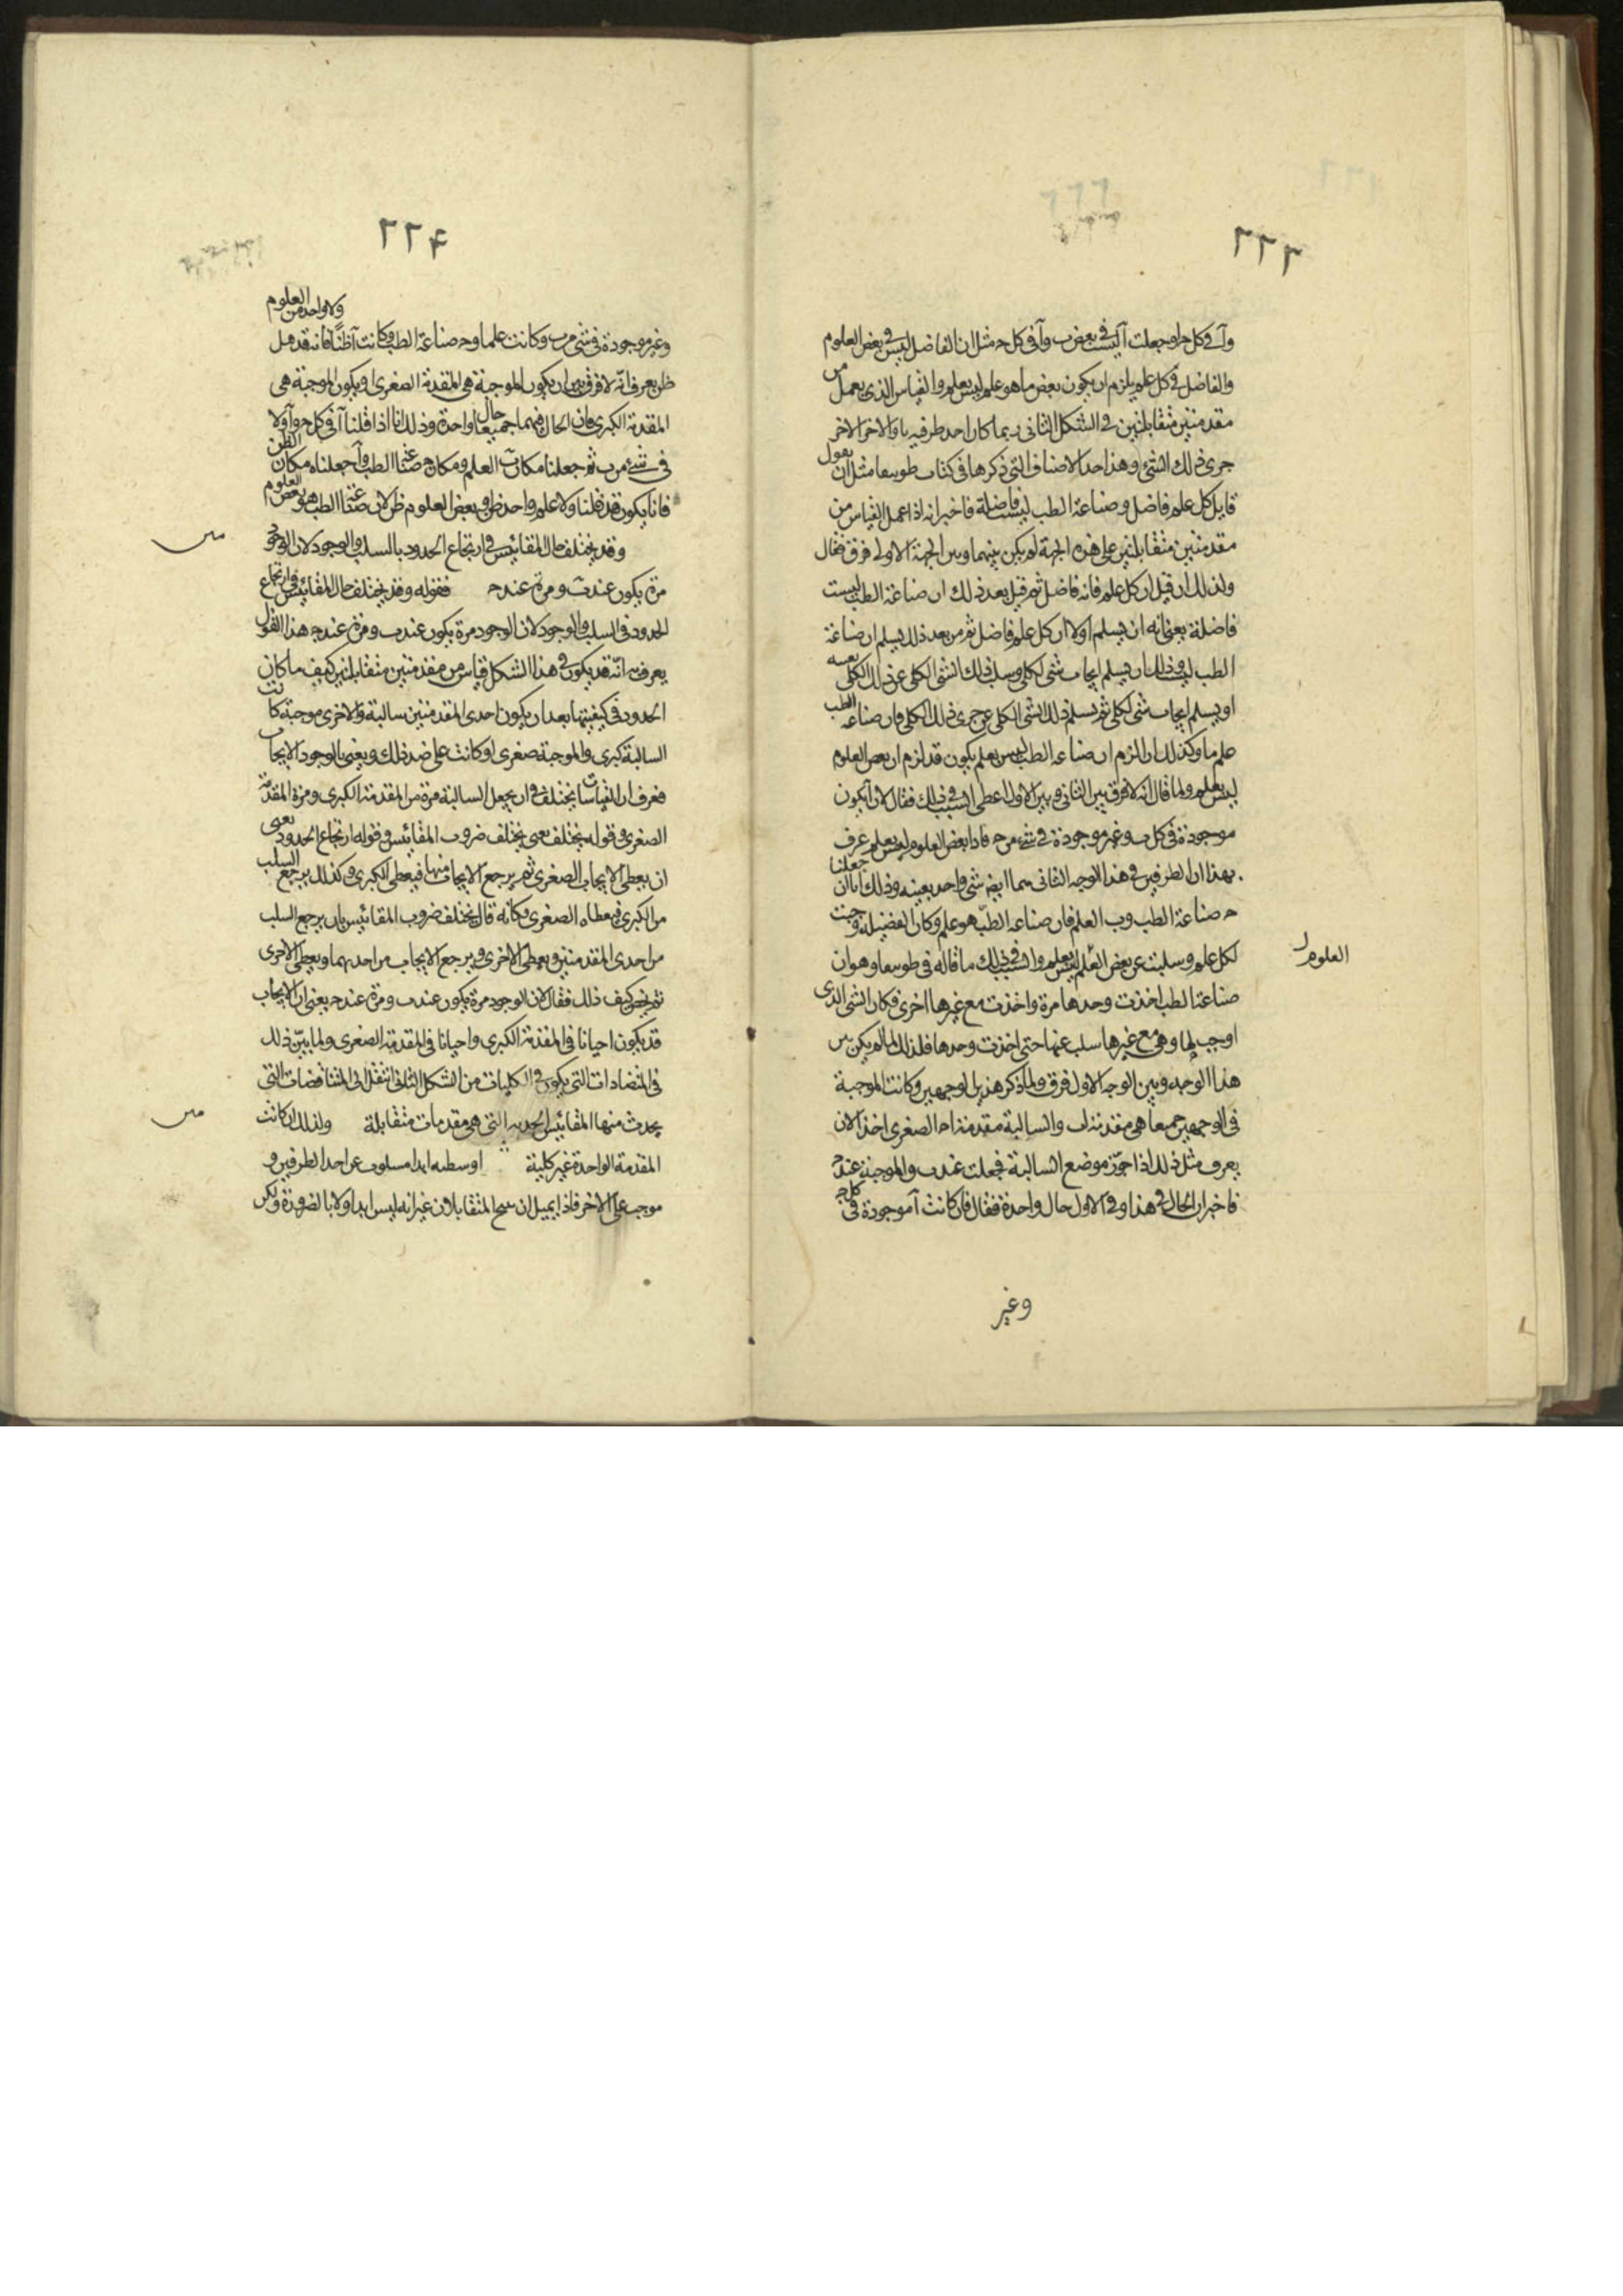 ٢٢٣
وآ في كل حـ او جعلت آ ليست في بعض ب وآ في كل حـ مثل ان الفاضل ليس في بعض العلوم
والفاضل في كل علم يلزم ان يكون بعض ما هو علم ليس بعلم والقياس الذي يعمل من
مقدمتين متقابلتين في الشكل الثاني ربما كان احد طرفيه با والاخر الاخر
جرى ذلك الشئ وهذا احد الاصناف التي ذكرها في كتاب طوبيقا مثل ان يقول
قايل كل علم فاضل وصناعة الطب ليست فاضلة فاخبر انه اذا عمل القياس من
مقدمتين متقابلتين على هذه الجهة لم يكن بينهما وبين الجهة الاولى فرق فقال
ولذلك ان قيل ان كل علم فانه فاضل ثم قيل بعد ذلك ان صناعة الطب ليست
فاضلة يعني انه ان يسلم اولا ان كل علم فاضل ثم من بعد ذلك يسلم ان صناعة
الطب ليست وذلك ان يسلم ايجاب شئ لكلي وسلب ذلك الشئ الكلي عن ذلك الكلي بعينه
او يسلم ايجاب شئ لكلي ثم يسلم ذلك الشئ الكلي عن جزئ ذلك الكلي فان صناعة الطب
علم ما وكذلك ان الزم ان صناعة الطب ليس بعلم يكون قد لزم ان بعض العلوم
ليس بعلم ولما قال انه لا فرق بين الثاني وبين الاول اعطى السبب في ذلك فقال لان آ يكون
موجودة في كل ب وغير موجودة في شئ من حـ فاذا بعض العلوم ليس بعلم عرف
بهذا ان الطرفين في هذا الوجه الثاني هما ايضا شئ واحد بعينه وذلك انا ان جعلنا
حـ صناعة الطب وب العلم فان صناعة الطب هو علم وكان الفضيلة وجبت
لكل علم وسلبت عن بعض العلم ليس بعلم والسبب في ذلك ما قاله في طوبيقا وهو ان
العلوم
صناعة الطب اخذت وحدها مرة واخذت مع غيرها اخرى فكان الشئ الذي
اوجب لها وهي مع غيرها سلب عنها حتى اخذت وحدها فلذلك لما لم يكن بين
هذا الوجه وبين الوجه الاول فرق ولما ذكر هذين الوجهين وكانت الموجبة
في الوجهين جميعا هي مقدمة اب والسالبة مقدمة احـ الصغرى اخذ الان
يعرف مثل ذلك اذا جوّز موضع السالبة فجعلت عند ب والموجبة عند حـ
فاخبر ان الحال في هذا وفي الاول حال واحدة فقال فان كانت آ موجودة في كل حـ
وغير
٢٢٤
وغير موجودة في شئ من ب وكانت علما وحـ صناعة الطب وكانت آ ظنا فانه قد قيل ولا واحد من العلوم
ظن يعرف انه لا فرق بين ان يكون الموجبة هي المقدمة الصغرى او يكون الموجبة هي
المقدمة الكبرى فان الحال فيهما جميعا حال واحدة وذلك انا اذا قلنا آ في كل حـ وآ ولا
في شئ من ب ثم جعلنا مكان ب العلم ومكان حـ صناعة الطب وآ جعلناه مكان الظن
فانا يكون قد قلنا ولا علم واحد ظن وبعض العلوم ظن لان صناعة الطب هو بعض العلوم
وقد يختلف حال المقائيس في ارتجاع الحدود بالسلب والوجود لان الوجود
مرة يكون عند ب ومرة عند حـ فقوله وقد يختلف حال المقائيس في ارتجاع
الحدود في السلب والوجود لان الوجود مرة يكون عند ب ومرة عند حـ هذا القول
يعرف به انه قد يكون في هذا الشكل قياس من مقدمتين متقابلتين كيف ما كان
الحدود في كيفيتهما بعد ان يكون احدى المقدمتين سالبة والاخرى موجبة كانت
السالبة كبرى والموجبة صغرى او كانت على ضد ذلك ويعني بالوجود الايجاب
فعرف ان القياسات يختلف في ان يجعل السالبة مرة من المقدمة الكبرى ومرة المقدمة
الصغرى وقوله يختلف يعني يختلف ضروب المقائيس وقوله ارتجاع الحدود يعني
ان يعطى الايجاب الصغرى ثم يرجع الايجاب منها فيعطى الكبرى وكذلك يرجع السلب
من الكبرى فيعطاه الصغرى فكانه قال يختلف ضروب المقائيس بان يرجع السلب
من احدى المقدمتين ويعطى الاخرى ويرجع الايجاب من احديهما ويعطى الاخرى
ثم يخبر كيف ذلك فقال لان الوجود مرة يكون عند ب ومرة عند حـ يعني ان الايجاب
قد يكون احيانا في المقدمة الكبرى واحيانا في المقدمة الصغرى ولما بيّن ذلك
في المتضادات التي يكون في الكليات من الشكل الثاني انتقل الى المتناقضات التي
يحدث منها المقائيس التي هي مقدمات متقابلة ولذلك ان كانت
المقدمة الواحدة غير كلية اوسطه ابدا مسلوب عن احد الطرفين و
موجب على الاخر فاذا المتقابلان غير انه ليس ابدا ولا بالضرورة ولكن